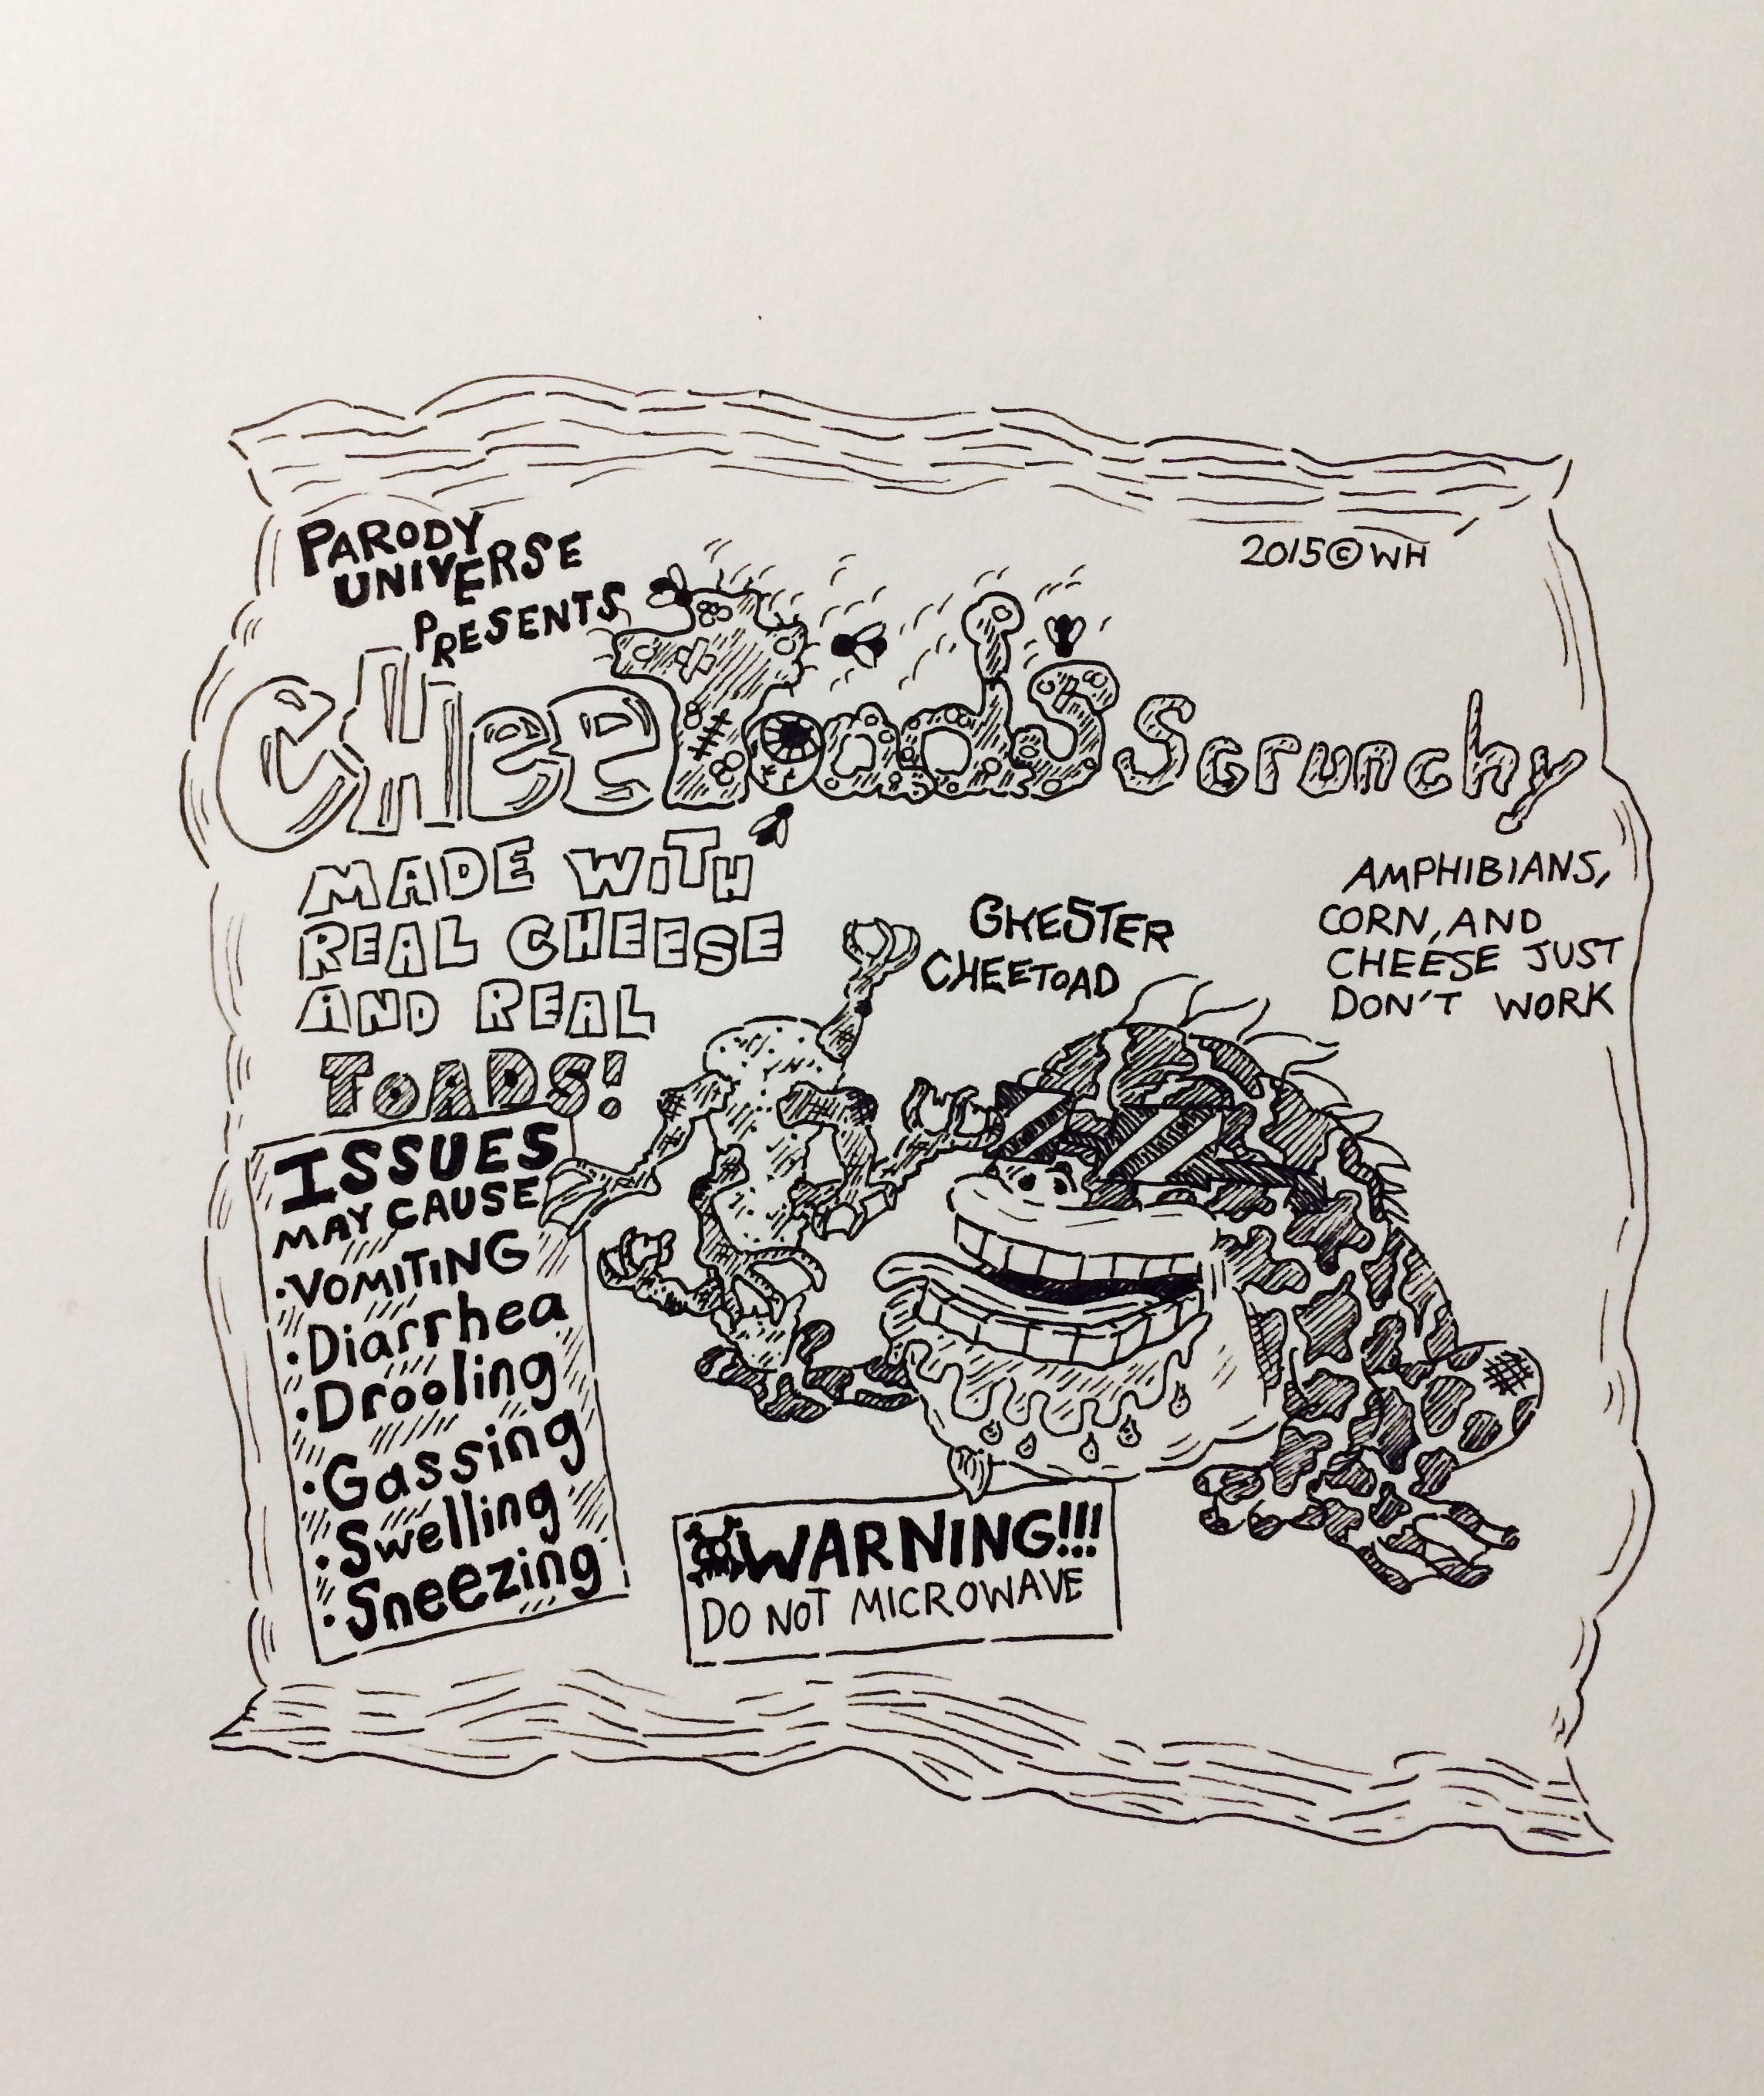 PARODY
UNIVERSE
PRESENTS
2015©WH
CHeetoadS Scrunchy
MADE WiTH
REAL CHEESE
AND REAL
ToADS!
AMPHIBIANS,
CORN, AND
CHEESE JUST
DON'T WORK
CHESTER
CHEETOAD
ISSUES
MAY CAUSE
·VOMITING
·Diarrhea
·Drooling
·Gassing
·Swelling
·Sneezing
WARNING!!!
DO NOT MICROWAVE